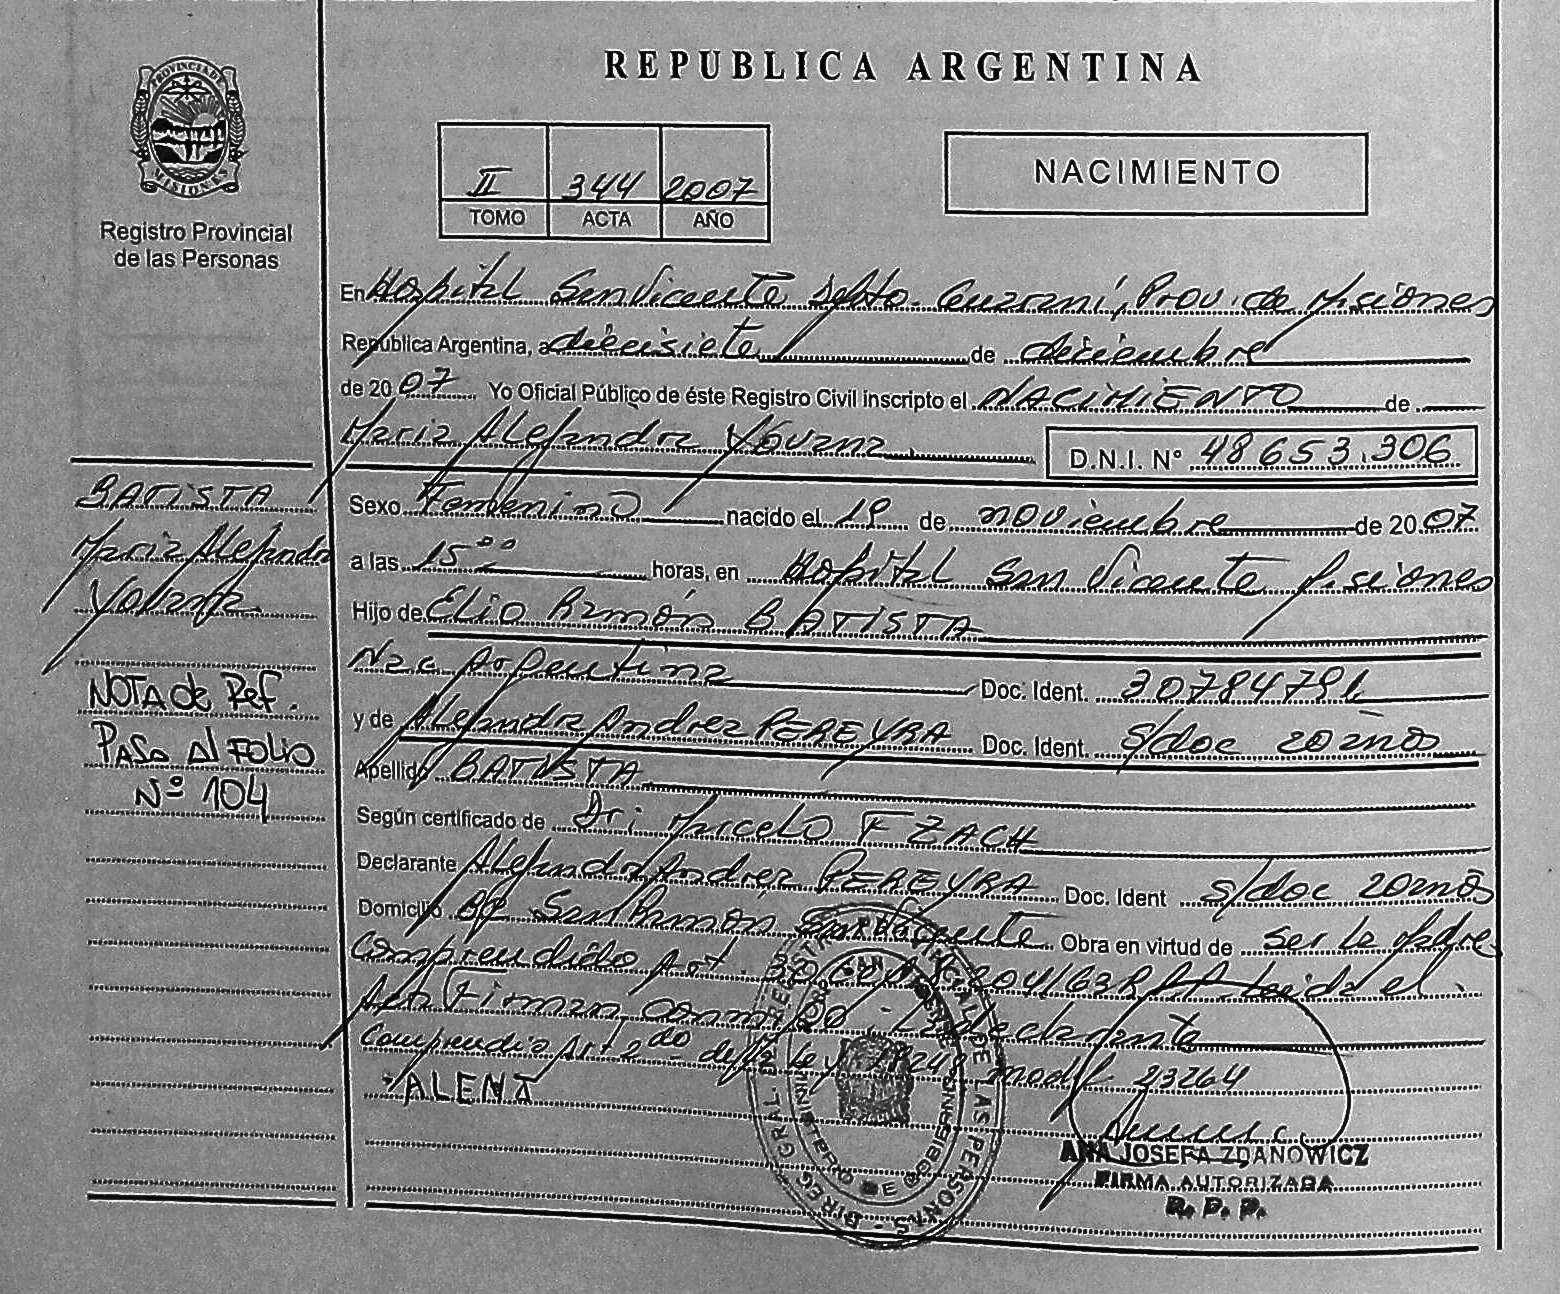 REPUBLICA ARGENTINA
PROVINCIA DE MISIONES
Registro Provincial
de las Personas
II 344 2007
TOMO ACTA AÑO
NACIMIENTO
En Hospital San Vicente Dpto. Guaraní, Prov. de Misiones
República Argentina, a diecisiete de diciembre
de 2007 Yo Oficial Público de éste Registro Civil inscripto el NACIMIENTO de
Maria Alejandra Yovana D.N.I. N° 48653.306
BATISTA
Maria Alejandra
Yovana
NOTA de Ref.
PASA Al FOLIO
Nº 104
Sexo Femenino nacido el 19 de noviembre de 2007
a las 15 00 horas, en Hospital San Vicente Misiones
Hijo de Elio Ramón BATISTA
Nac Argentina Doc. Ident. 3078479
y de Alejandra Andrea PEREYRA Doc. Ident. s/doc 20 años
Apellido BATISTA
Según certificado de Dr: Marcelo F ZACH
Declarante Alejandra Andrea PEREYRA Doc. Ident s/doc 20 años
Domicilio Bº San Ramón San Vicente Obra en virtud de ser la Madre
Comprendido Art. 30 Leida el
Acta Firman conmigo - La declarante
Comprendia Art 2do de la Ley 18248 modf 23264
ALENA
DIREC. GRAL. DEL REGISTRO PROVINCIAL DE LAS PERSONAS
SAN VICENTE
ANA JOSEFA ZDANOWICZ
FIRMA AUTORIZADA
R. P. P.